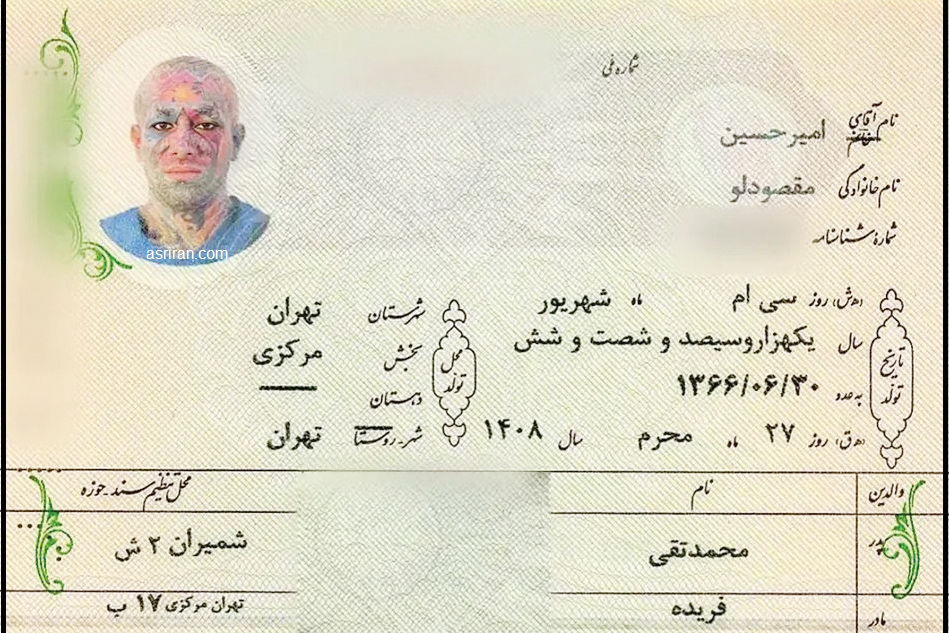 شماره ملی
نام آقای خانم امیرحسین
نام خانوادگی مقصودلو
شمارهٔ شناسنامه
تاریخ تولد
(ه‍.ش) روز سی ام ماه شهریور
سال یکهزاروسیصد و شصت و شش
به عدد ۱۳۶۶/۰۶/۳۰
(ه‍.ق) روز ۲۷ ماه محرم سال ۱۴۰۸
محل تولد
شهرستان تهران
بخش مرکزی
دهستان
شهر - روستا تهران
asriran.com
والدین نام محل تنظیم سند - حوزه
پدر محمدتقی شمیران ۲ ش
مادر فریده تهران مرکزی ۱۷ ب